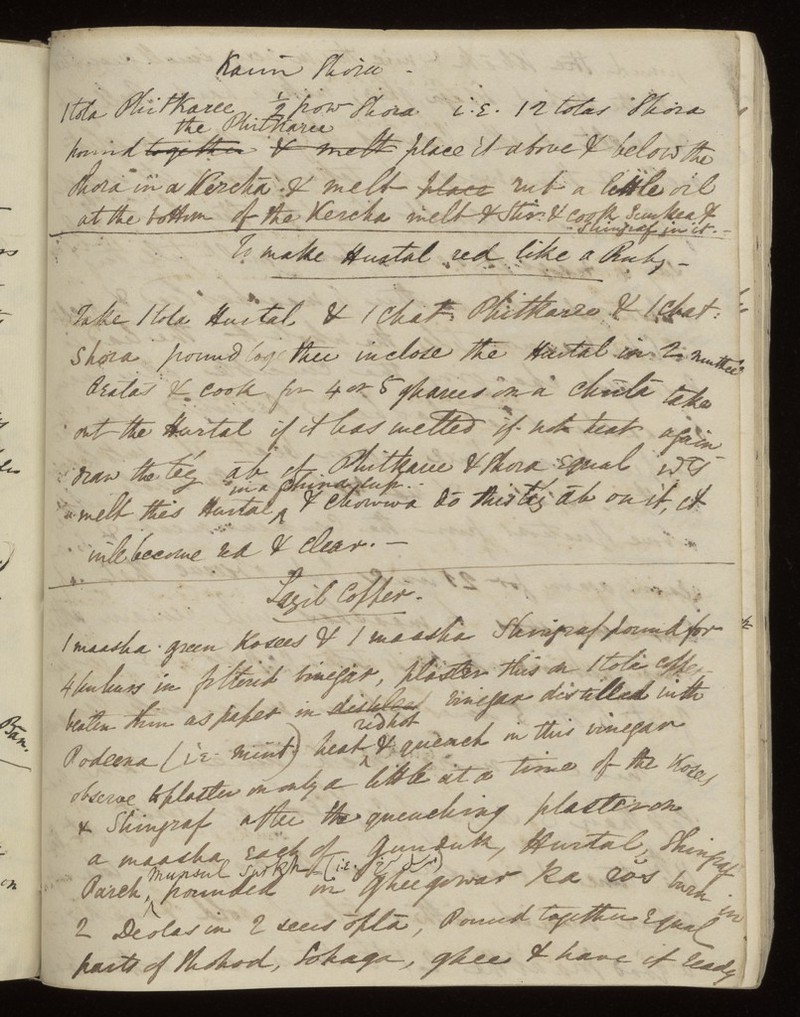 Kaim Shora -
1 tola Phitkaree ½ pow Shora i.e. 12 tolas Shora
the Phitkaree
pound together & melt place it above & below the
Shora in a Kercha & melt place rub a little oil
at the bottom of the Kercha melt & stir & cook &
Shingraf in it -
To make Hurtal red like a Ruby -
Take 1 tola Hurtal & 1 chat: Phitkaree & 1 chat:
Shora pound together inclose the Hurtal in 2
& cook for 4 or 5 gharees on a chula take
out the Hurtal if it has melted if not heat again
draw the tez ab of Phitkaree & Shora equal wts
in a cup
melt this Hurtal & chowwa do this tez ab on it, it
will become red & clear. -
Copper -
1 maasha green Kosees & 1 maasha Shingraf pound for
4 hours in filtered vinegar, plaster this on 1 tola copper
beaten thin as paper in vinegar distilled with
red hot
Podeena (i.e. mint) heat & quench in this vinegar
observe to plaster on only a little at a time of the Kosees
& Shingraf after the quenching plaster on
a maasha each of Gunduk, Hurtal, Shingraf
Munsul Surkh (i.e.
Parch, pounded in gheegowar ka ros burn in
2 Deolas in 2 seers opla, Pound together Equal
parts of Shohod, Sohaga, ghee & have it ready
Ban.
on